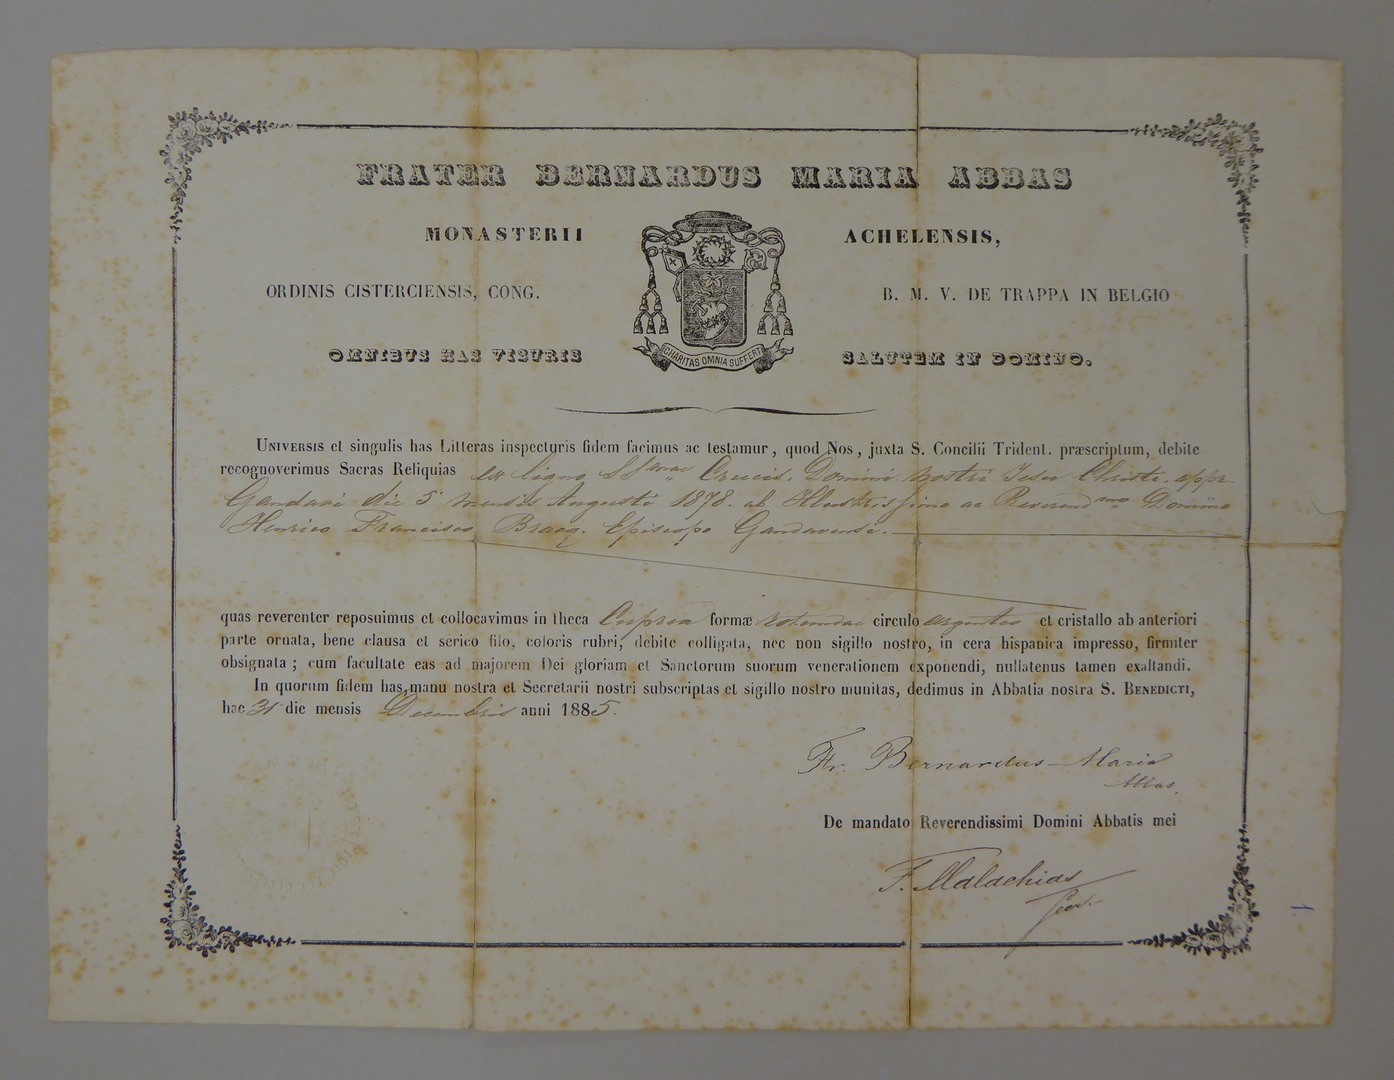 FRATER BERNARDUS MARIA ABBAS
MONASTERII ACHELENSIS,
ORDINIS CISTERCIENSIS, CONG. B. M. V. DE TRAPPA IN BELGIO
CHARITAS OMNIA SUFFERT
OMNIBUS HAS VISURIS SALUTEM IN DOMINO.
UNIVERSIS et singulis has Litteras inspecturis fidem facimus ac testamur, quod Nos, juxta S. Concilii Trident. præscriptum, debite
recognoverimus Sacras Reliquias ex ligno SSmae Crucis. Domini Nostri Jesu Christi. appr.
Gandavi die 5 mensis Augusti 1878. ab Illustrissimo ac Reverendmo Domino
Henrico Francisco Bracq. Episcopo Gandavensi.
quas reverenter reposuimus et collocavimus in theca Cuprea formæ rotundae circulo argenteo et cristallo ab anteriori
parte ornata, bene clausa et serico filo, coloris rubri, debite colligata, nec non sigillo nostro, in cera hispanica impresso, firmiter
obsignata ; cum facultate eas ad majorem Dei gloriam et Sanctorum suorum venerationem exponendi, nullatenus tamen exaltandi.
In quorum fidem has, manu nostra et Secretarii nostri subscriptas et sigillo nostro munitas, dedimus in Abbatia nostra S. BENEDICTI,
hac 31 die mensis Decembris anni 1885.
Fr. Bernardus-Maria
Abbas.
De mandato Reverendissimi Domini Abbatis mei
F. Malachias
Secr.
1.